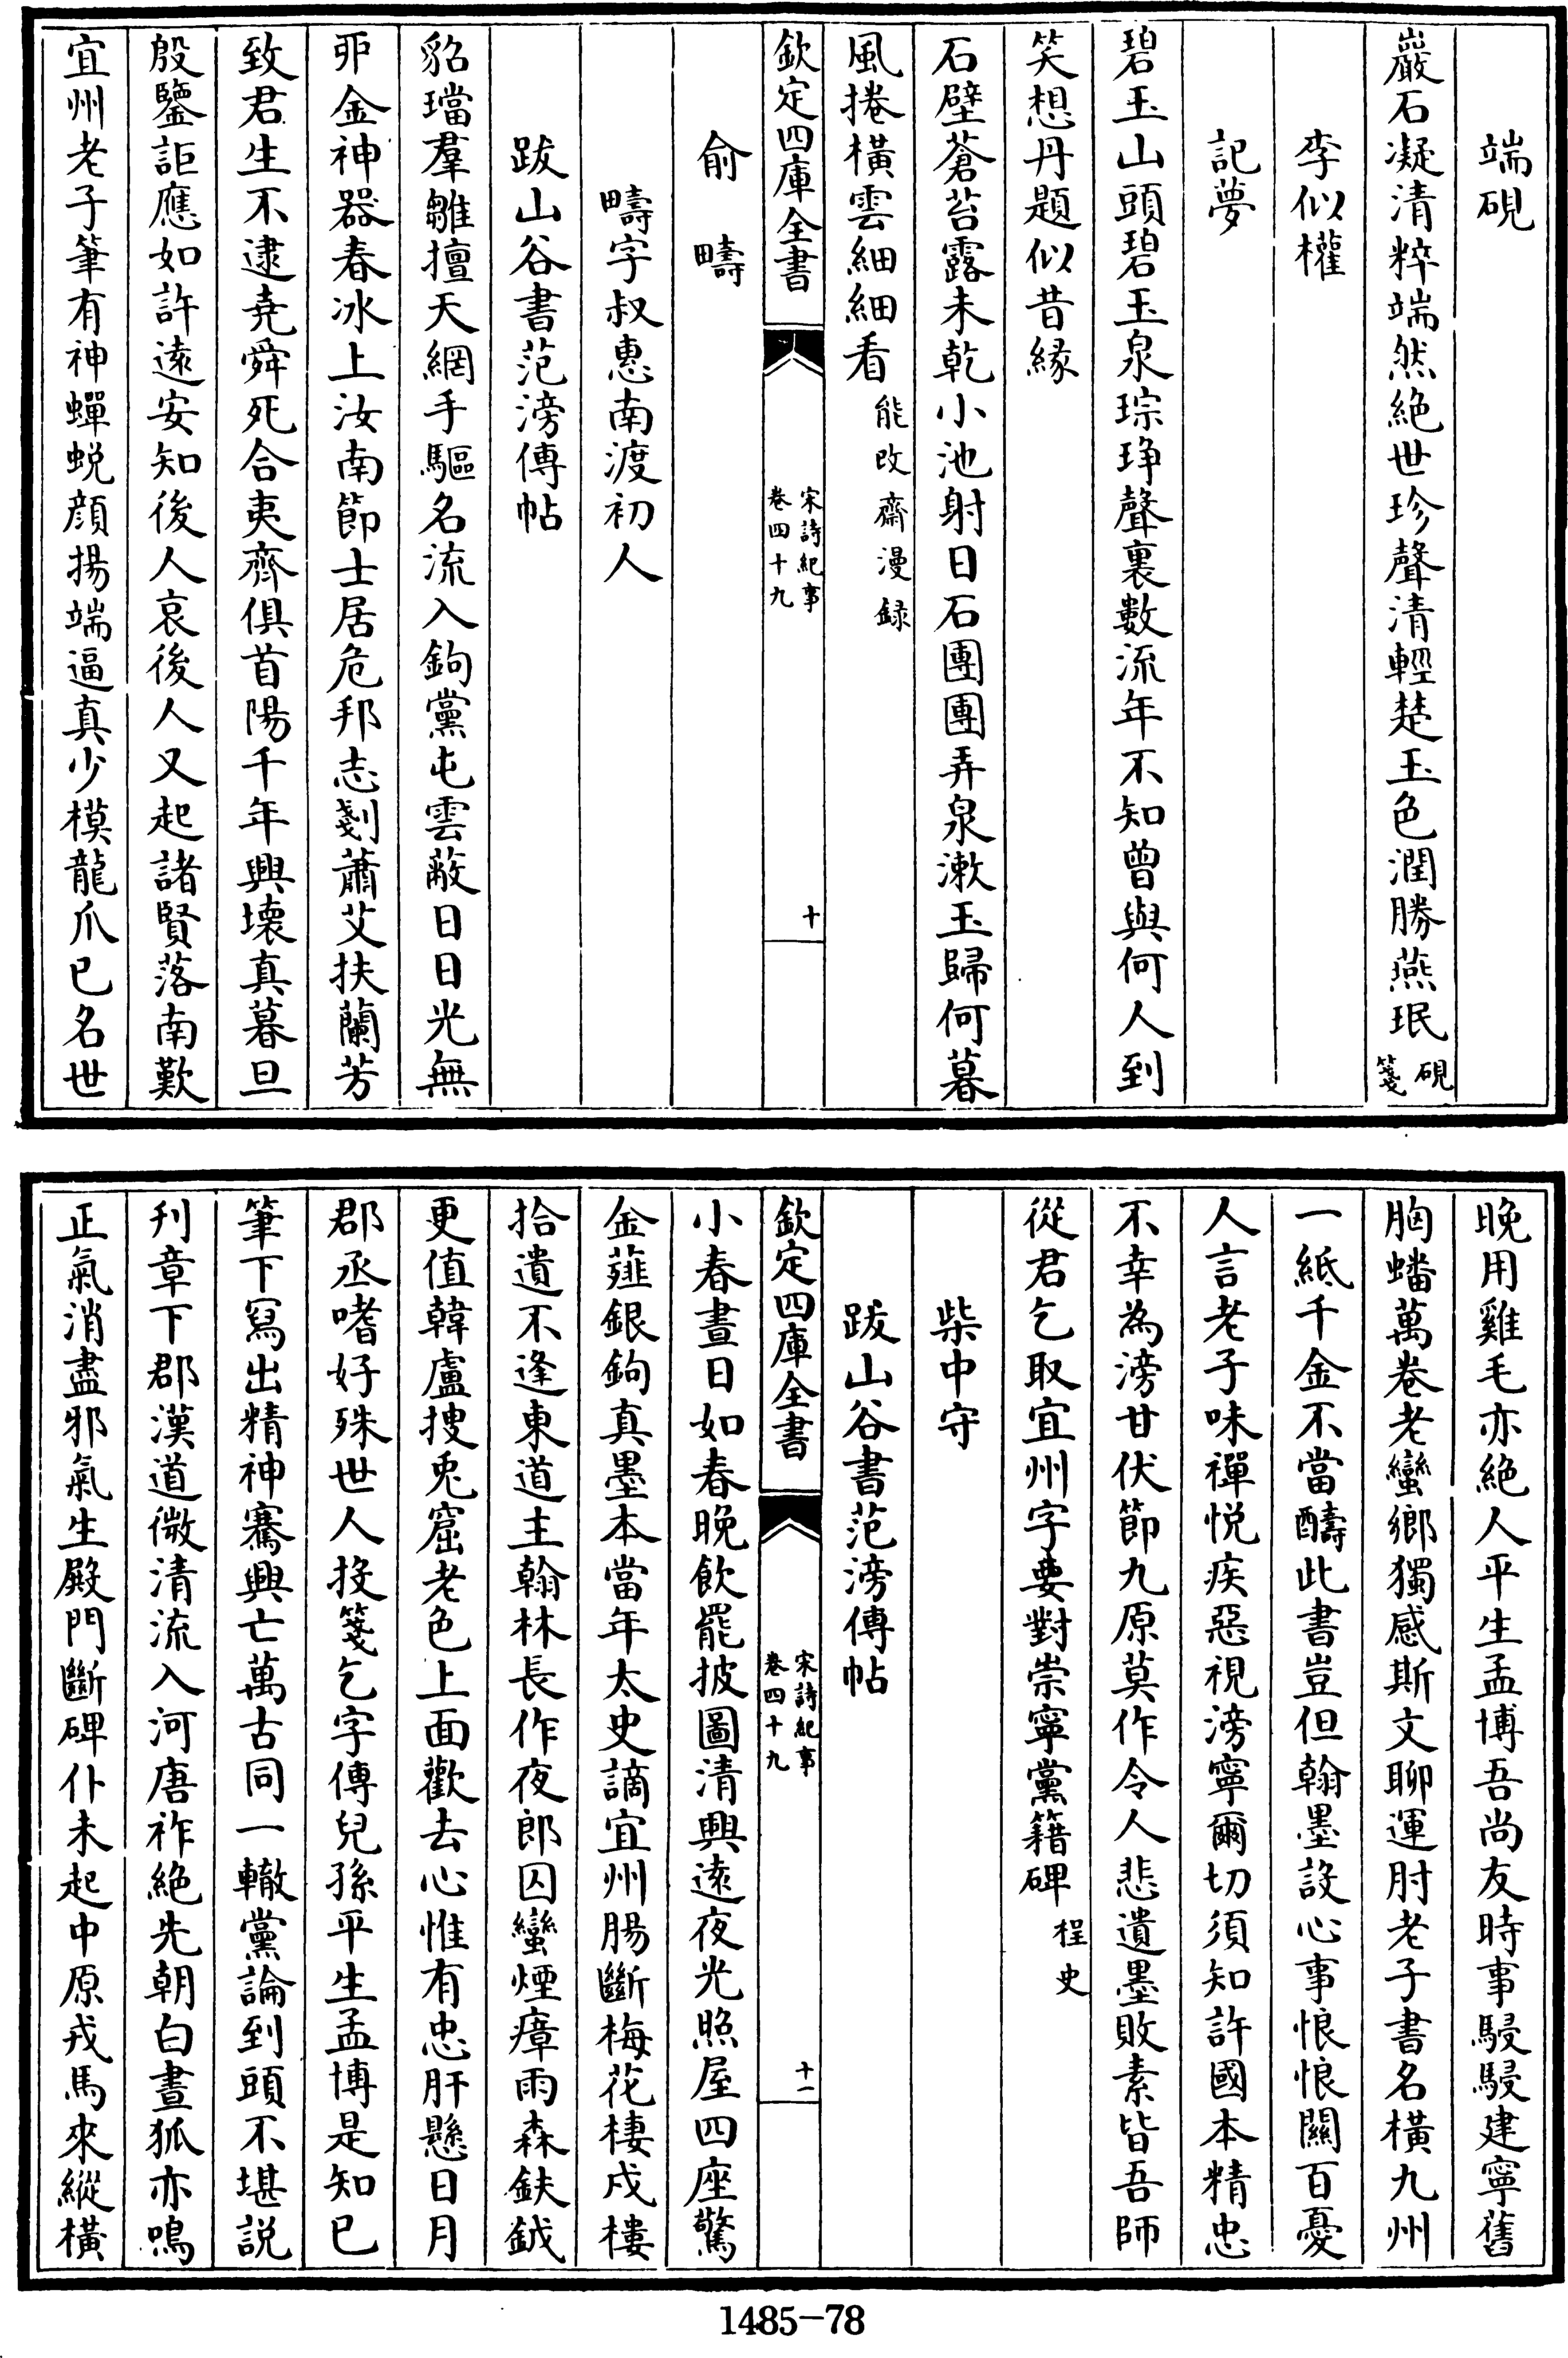 端硯
巖石凝清粹端然絶世珍聲清輕楚玉色潤勝燕珉硯箋
李似權
記夢
碧玉山頭碧玉泉琮琤聲裏數流年不知曾與何人到
笑想丹題似昔縁
石壁蒼苔露未乾小池射日石團團弄泉漱玉歸何暮
風捲橫雲細細看能改齋漫録
欽定四庫全書
宋詩紀事
卷四十九
十
俞疇
疇字叔惠南渡初人
跋山谷書范滂傳帖
貂璫羣雛擅天網手驅名流入鉤黨屯雲蔽日日光無
夘金神器春冰上汝南節士居危邦志剗蕭艾扶蘭芳
致君生不逮堯舜死合夷齊俱首陽千年興壞真暮旦
殷鑒詎應如許遠安知後人哀後人又起諸賢落南歎
宜州老子筆有神蟬蜕顔揚端逼真少模龍爪已名世
晚用雞毛亦絶人平生孟博吾尚友時事駸駸建寧舊
胸蟠萬卷老蠻鄉獨感斯文聊運肘老子書名橫九州
一紙千金不當醻此書豈但翰墨設心事悢悢關百憂
人言老子味禪悦疾惡視滂寧爾切須知許國本精忠
不幸為滂甘伏節九原莫作令人悲遺墨敗素皆吾師
從君乞取宜州字要對崇寧黨籍碑桯史
柴中守
跋山谷書范滂傳帖
欽定四庫全書
宋詩紀事
卷四十九
十一
小春晝日如春晚飲罷披圖清興遠夜光照屋四座驚
金薤銀鉤真墨本當年太史謫宜州腸斷梅花棲戍樓
拾遺不逢東道主翰林長作夜郎囚蠻煙瘴雨森鈇鉞
更值韓盧搜兎窟老色上面歡去心惟有忠肝懸日月
郡丞嗜好殊世人投箋乞字傳兒孫平生孟博是知已
筆下寫出精神騫興亡萬古同一轍黨論到頭不堪説
刋章下郡漢道微清流入河唐祚絶先朝白晝狐亦鳴
正氣消盡邪氣生殿門斷碑仆未起中原戎馬來縱橫
1485-78